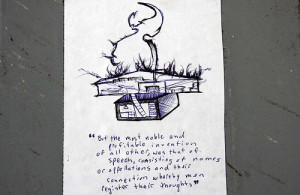 "But the most noble and
profitable invention
of all other, was that of
speech, consisting of names
or apellations and their
connexion whereby men
register their thoughts"